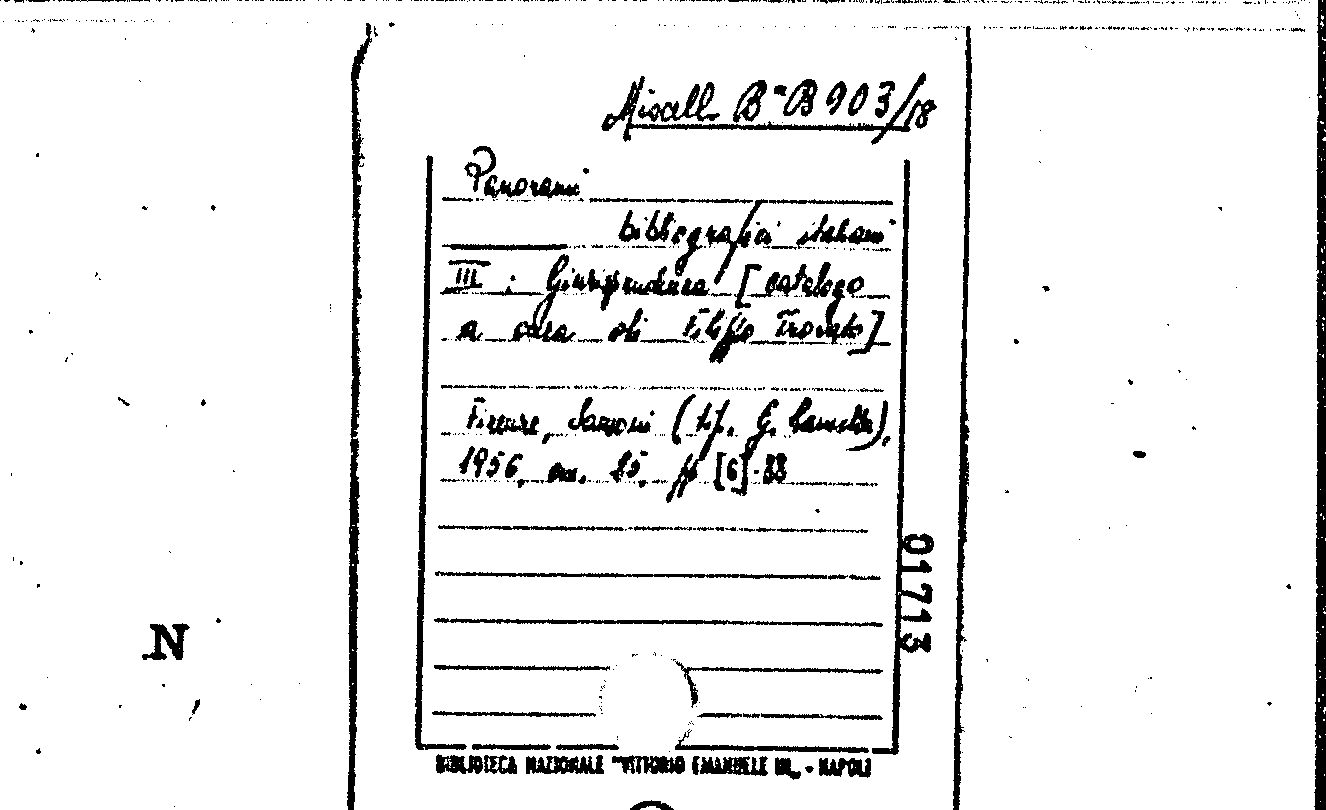 Miscell. Bª B 903/18
Panorami
bibliografici italiani
III : Giurisprudenza [catalogo
a cura di Filippo Trovato]
Firenze, Sansoni (tip. G.
1956, cm. 25, pp [6]-88
01713
N
BIBLIOTECA NAZIONALE "VITTORIO EMANUELE III„ - NAPOLI